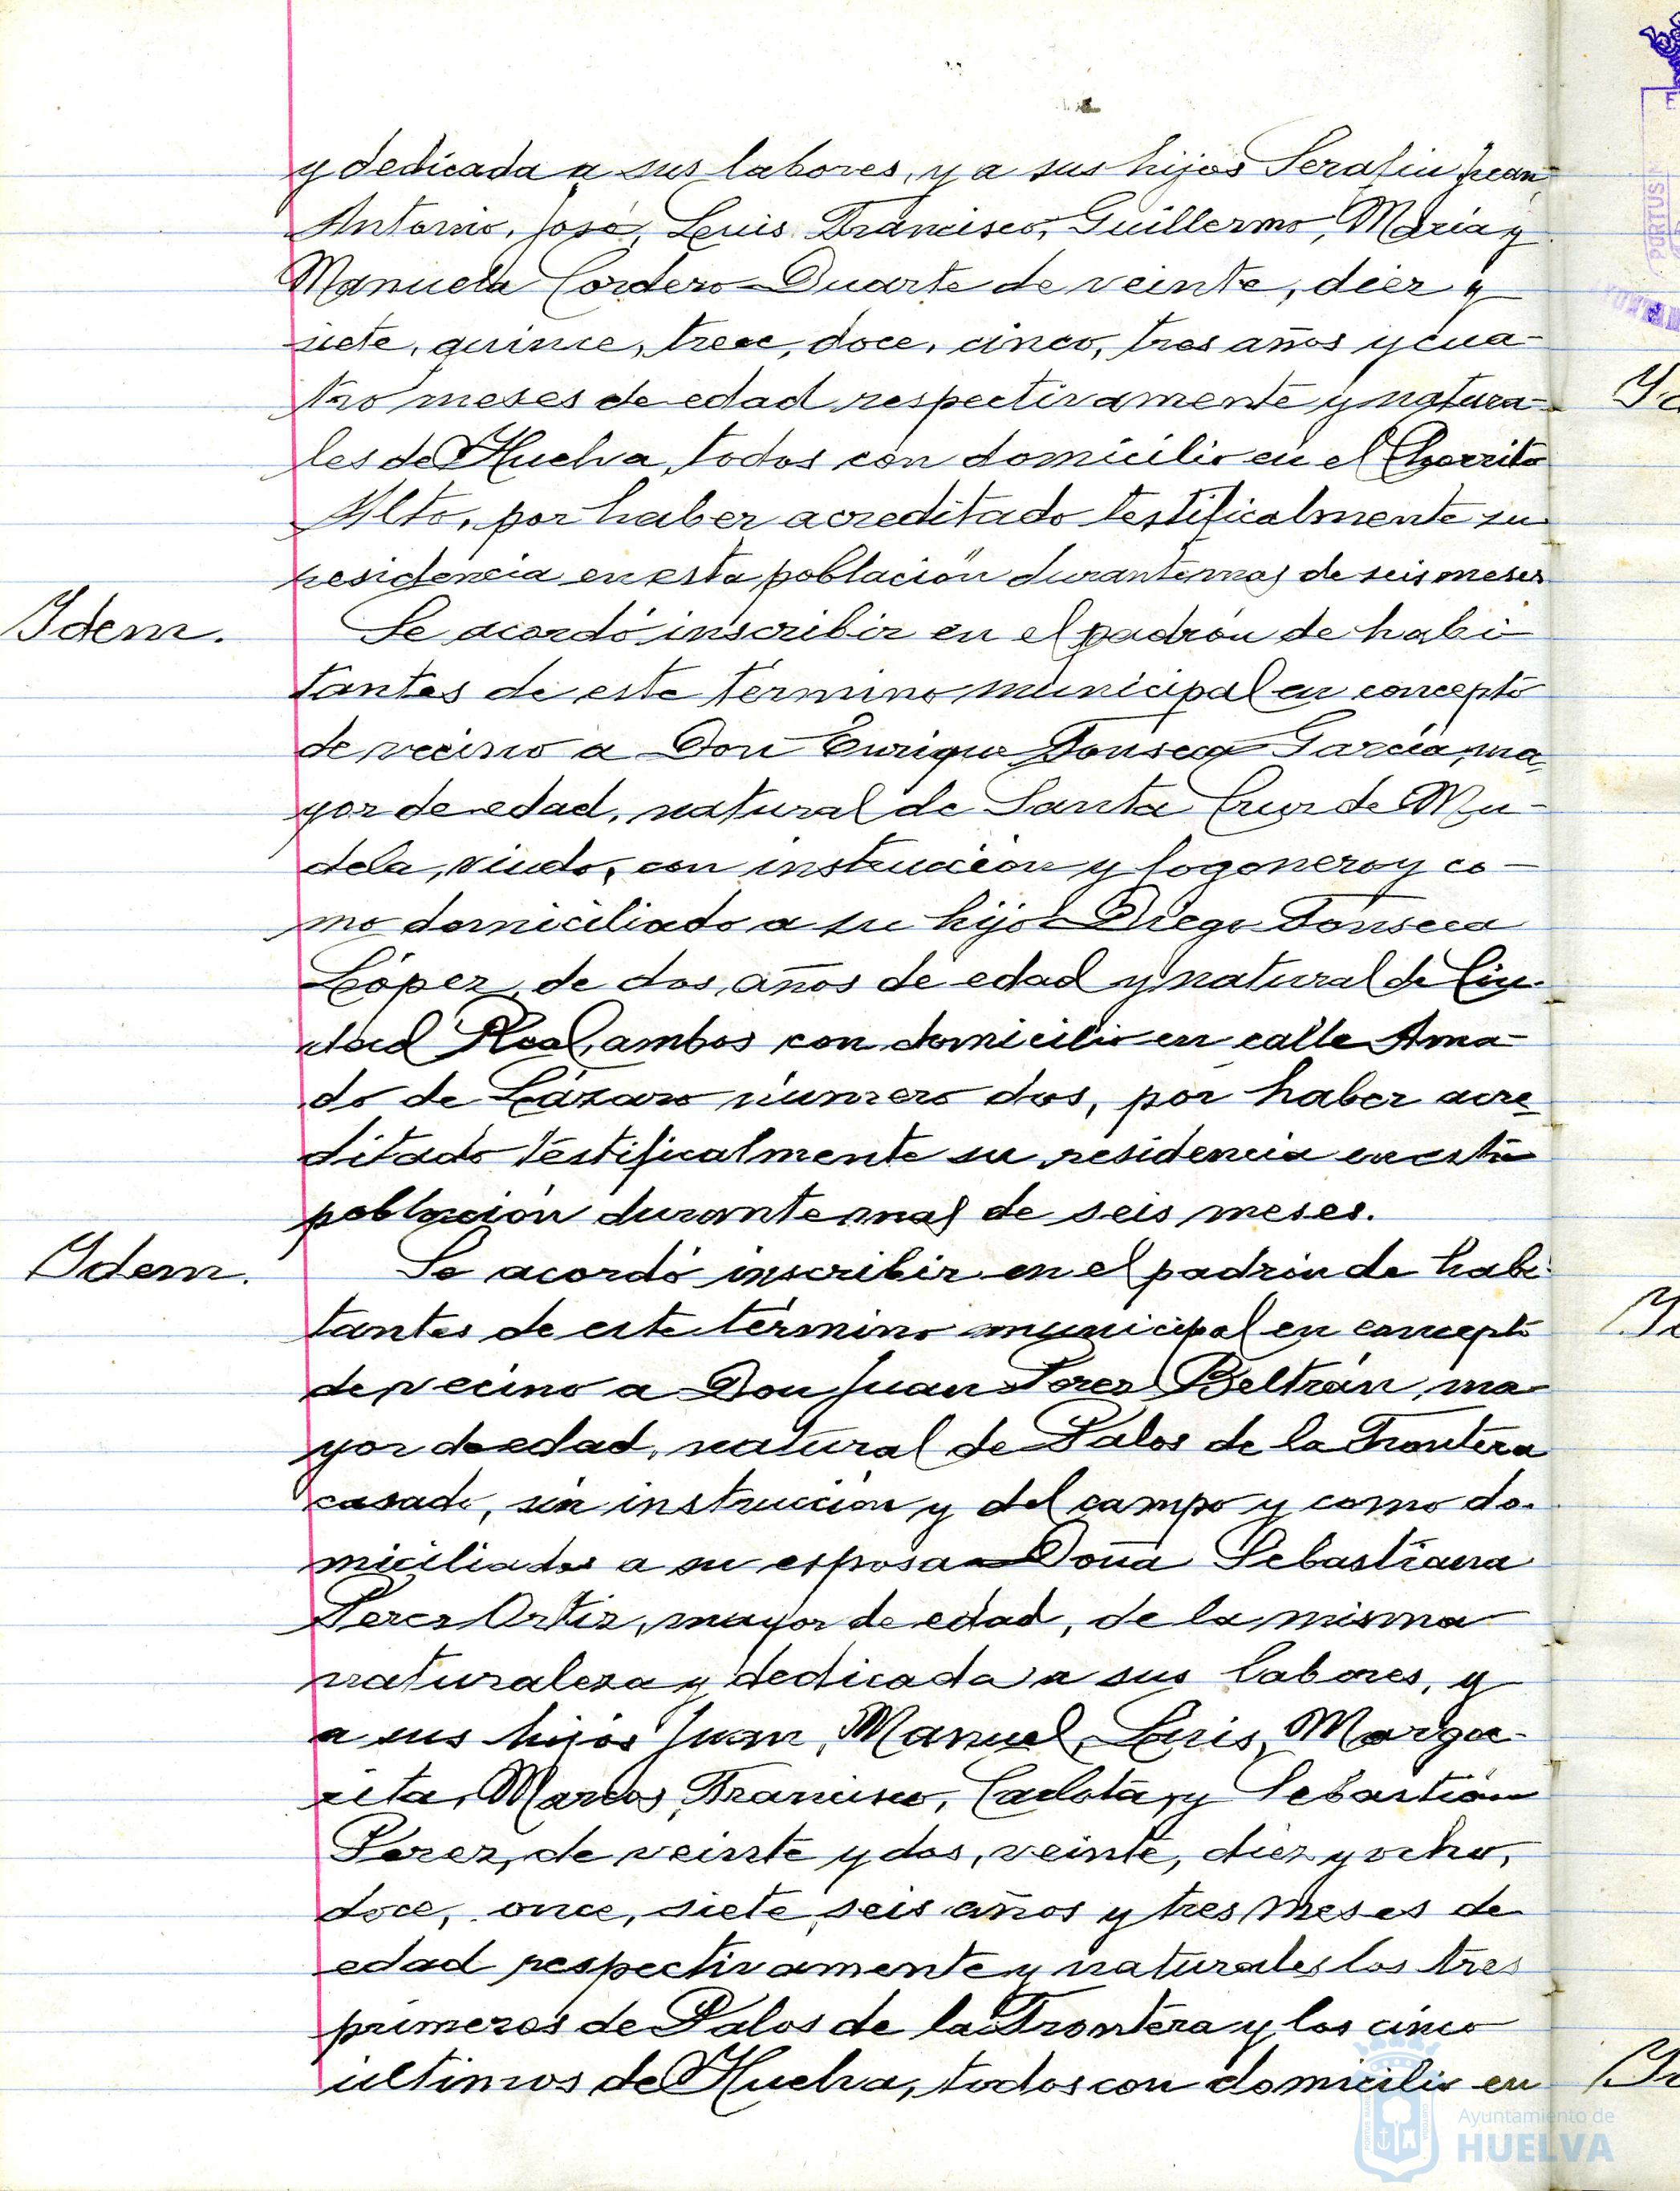 y dedicada a sus labores, y a sus hijos Serafin Juan
Antonio, José, Luis Francisco, Guillermo, María y
Manuela Cordero Duarte de veinte, diez y
siete, quince, trece, doce, cinco, tres años y cua-
tro meses de edad respectivamente y natura-
les de Huelva, todos con domicilio en el Chorrito
Alto, por haber acreditado testificalmente su
residencia en esta población durante mas de seis meses
Idem.
Se acordó inscribir en el padrón de habi-
tantes de este término municipal en concepto
de vecino a Don Enrique Fonseca García, ma-
yor de edad, natural de Santa Cruz de Mu-
dela, viudo, con instrucción y fogonero y co-
mo domiciliado a su hijo Diego Fonseca
López, de dos años de edad y natural de Ciu-
dad Real, ambos con domicilio en calle Ama-
do de Lázaro número dos, por haber acre-
ditado testificalmente su residencia en esta
población durante mas de seis meses.
Idem.
Se acordó inscribir en el padrón de habi-
tantes de este término municipal en concepto
de vecino a Don Juan Perez Beltrán, ma-
yor de edad, natural de Palos de la Frontera
casado, sin instrucción y del campo y como do-
miciliados a su esposa Doña Sebastiana
Perez Ortiz, mayor de edad, de la misma
naturaleza y dedicada a sus labores, y
a sus hijos Juan, Manuel, Luis, Marga-
rita, Marcos, Francisco, Carlota, y Sebastián
Perez, de veinte y dos, veinte, diez y ocho,
doce, once, siete, seis años y tres meses de
edad respectivamente y naturales los tres
primeros de Palos de la Frontera y los cinco
últimos de Huelva, todos con domicilio en
PORTUS
Ayuntamiento de
HUELVA